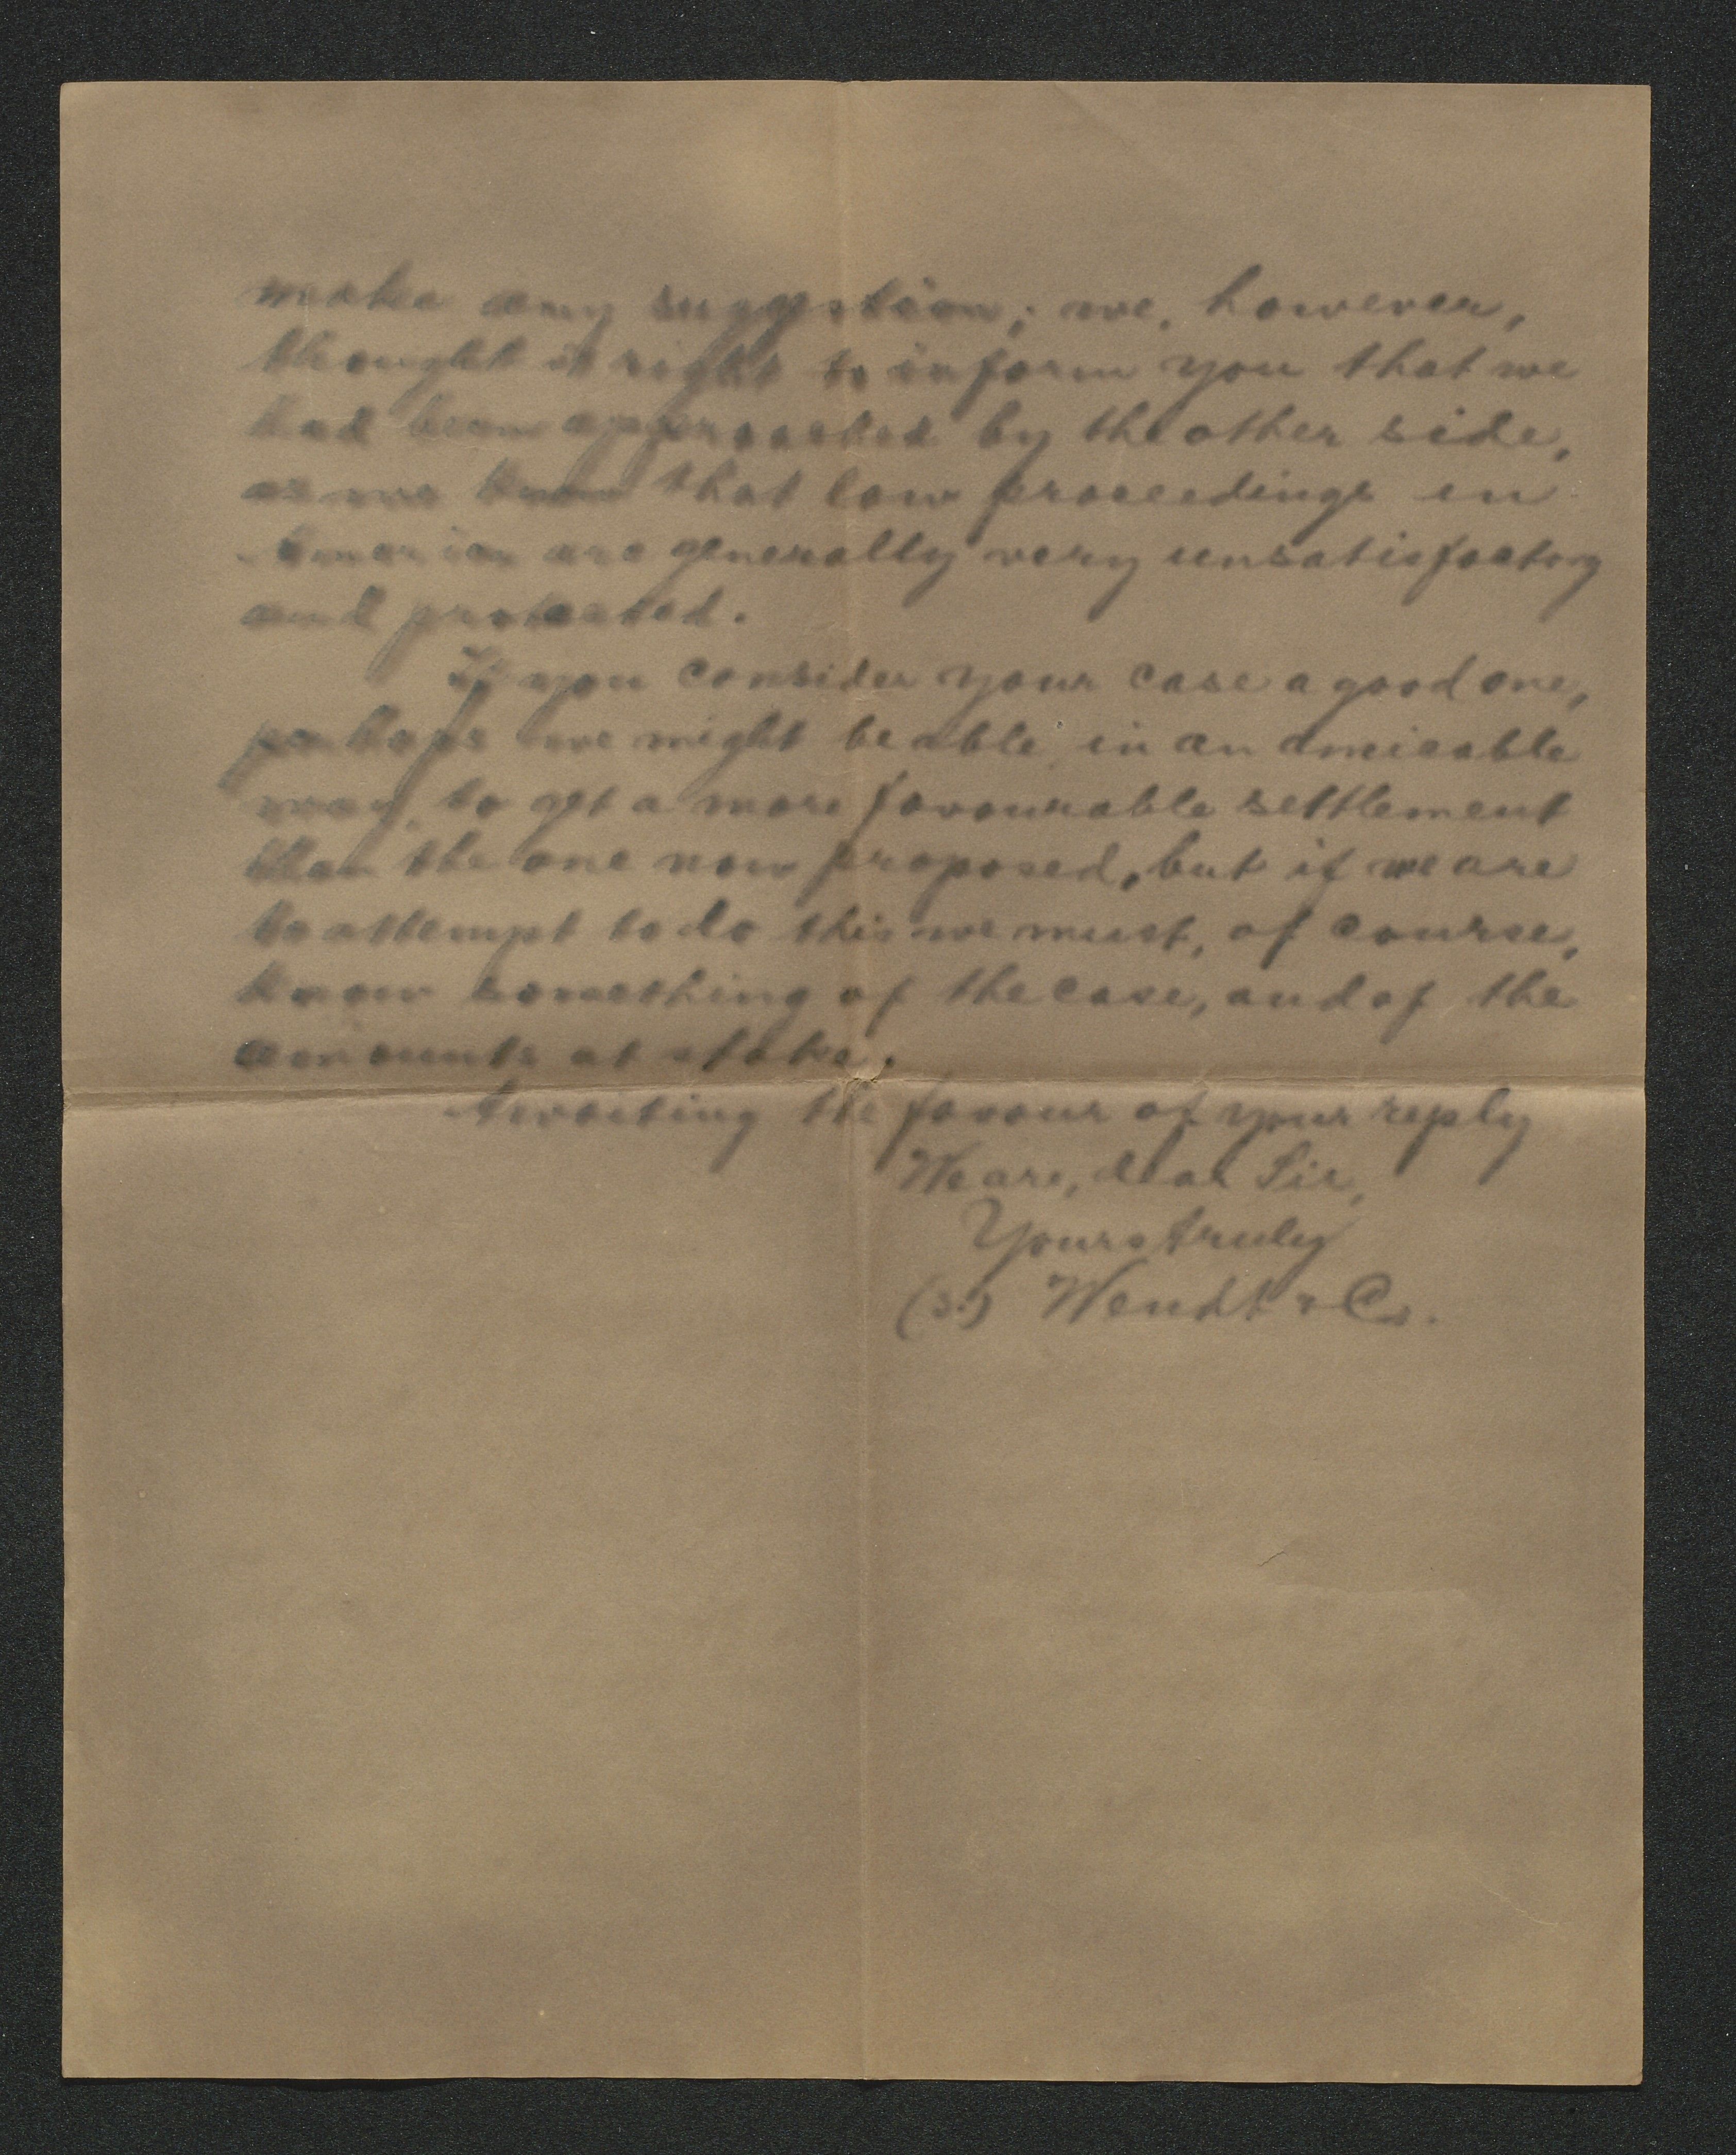 make any suggestion; we, however,
thought it right to inform you that we
had been approached by the other side,
as we know that law proceedings in
America are generally very unsatisfactory
and protracted.
If you consider your case a good one,
perhaps we might be able, in an amicable
way, to get a more favourable settlement
than the one now proposed, but if we are
to attempt to do this we must, of course,
know something of the case, and of the
amounts at stake.
Awaiting the favour of your reply
We are, dear Sir,
Yours truly
(s.) Wendt & Co.